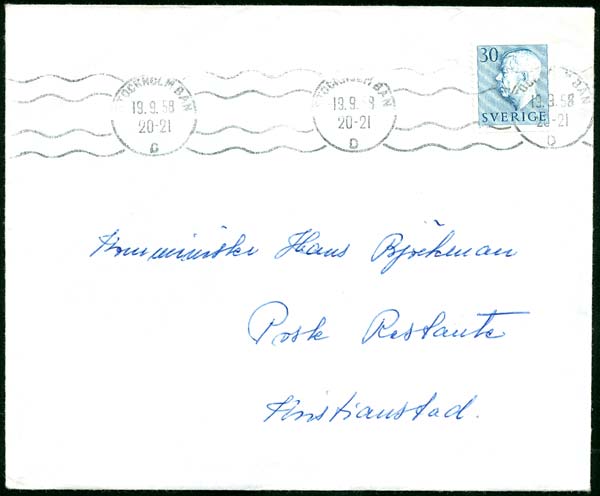 STOCKHOLM BAN
19.9.58
20-21
C
STOCKHOLM BAN
19.9. 8
20-21
D
30
SVERIGE
19.9.58
20-21
D
Hans Björkman
Post Restante
Kristianstad.